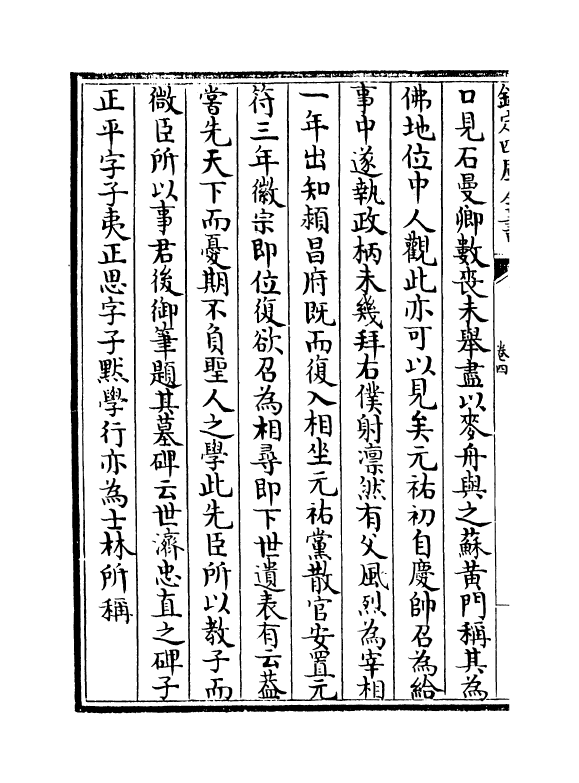 欽定四庫全書
卷四
口見石曼卿數喪未舉盡以麥舟與之蘇黃門稱其為
佛地位中人觀此亦可以見矣元祐初自慶帥召為給
事中遂執政柄未幾拜右僕射凛然有父風烈為宰相
一年出知頴昌府既而復入相坐元祐黨散官安置元
符三年徽宗即位復欲召為相尋即下世遺表有云葢
嘗先天下而憂期不負聖人之學此先臣所以教子而
微臣所以事君後御筆題其墓碑云世濟忠直之碑子
正平字子夷正思字子黙學行亦為士林所稱